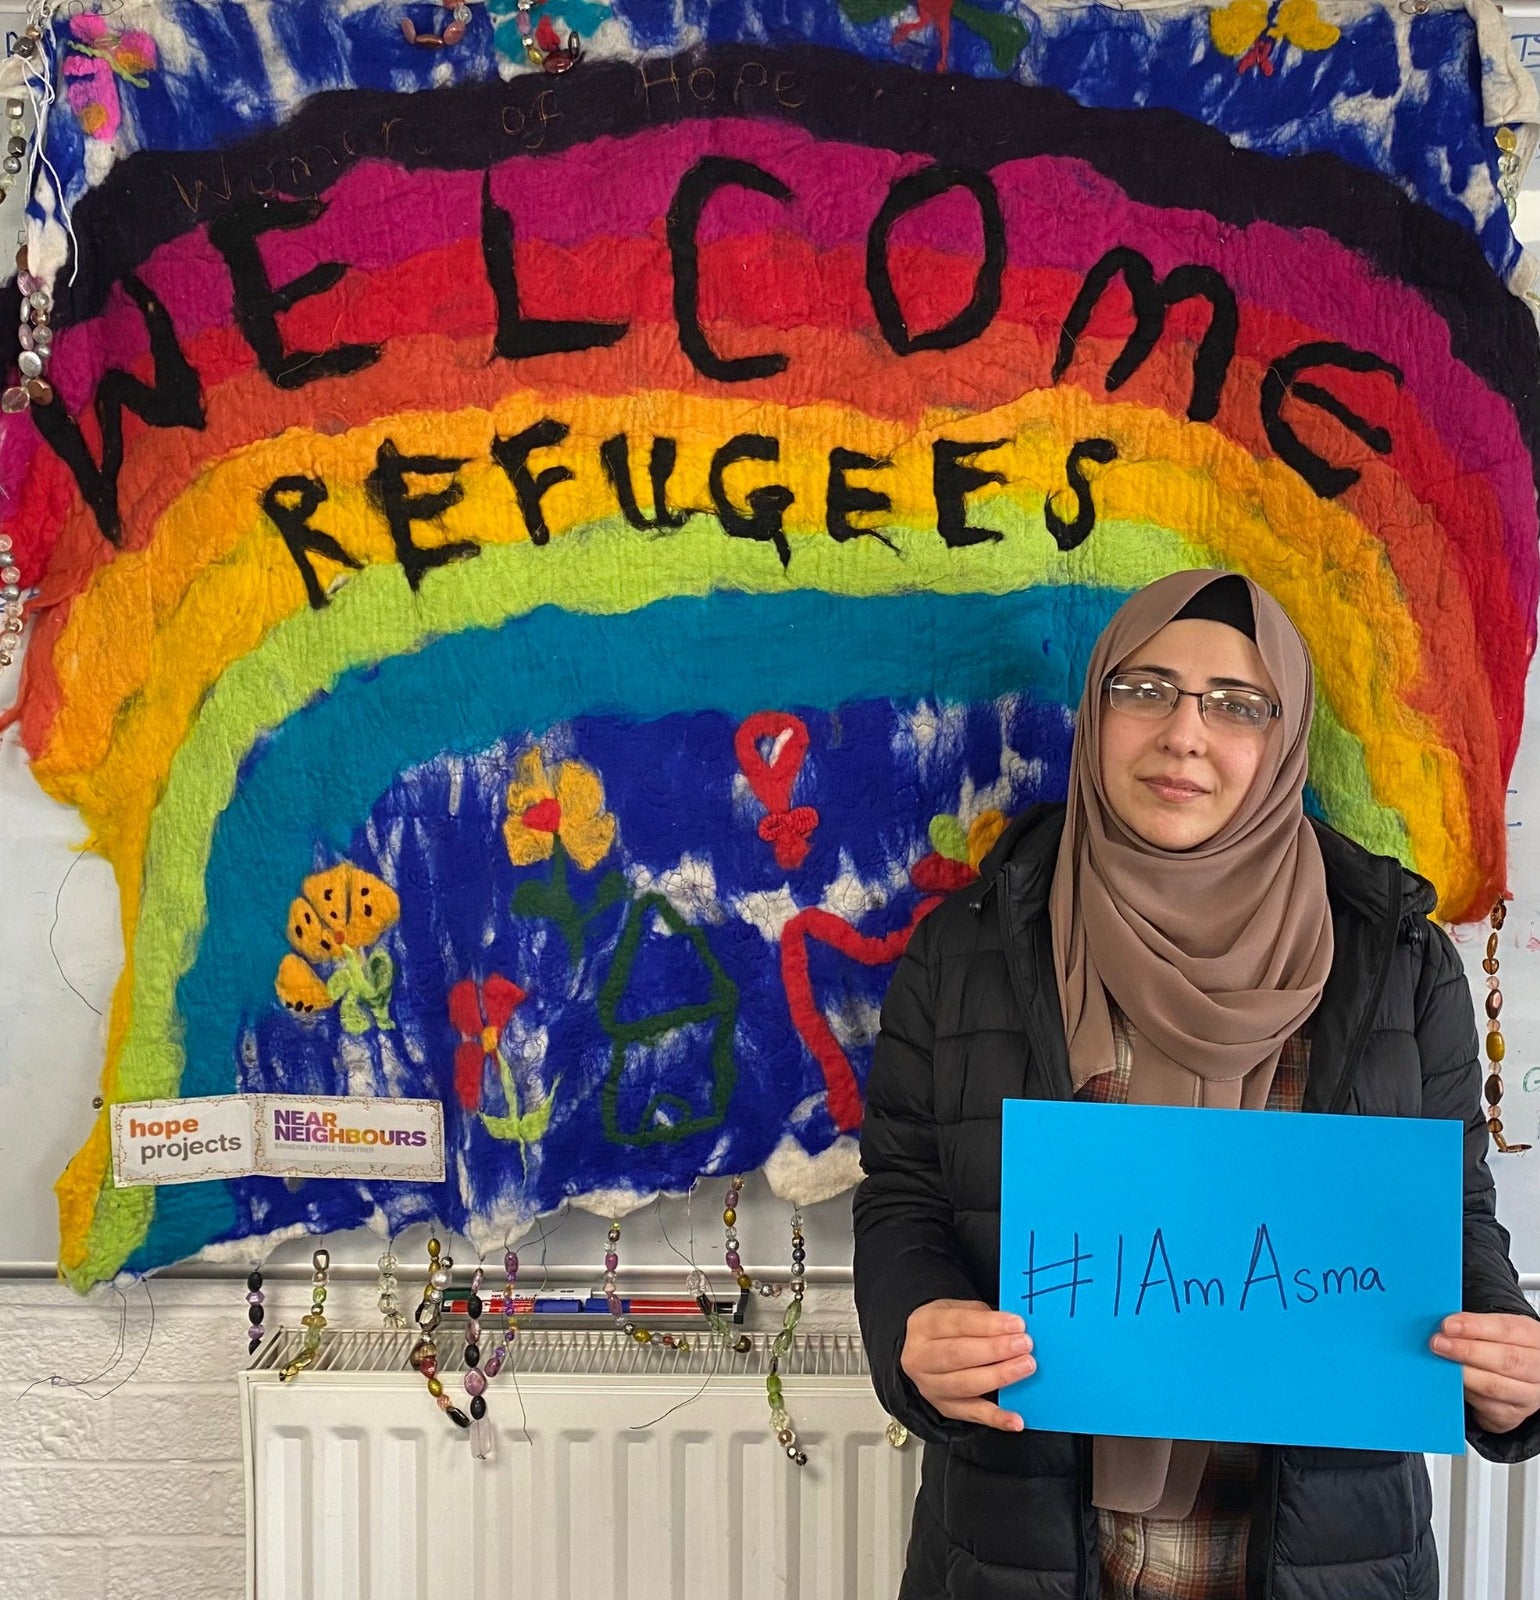 Women of Hope
WELCOME
REFUGEES
hope
projects
NEAR
NEIGHBOURS
BRINGING PEOPLE TOGETHER
#IAmAsma